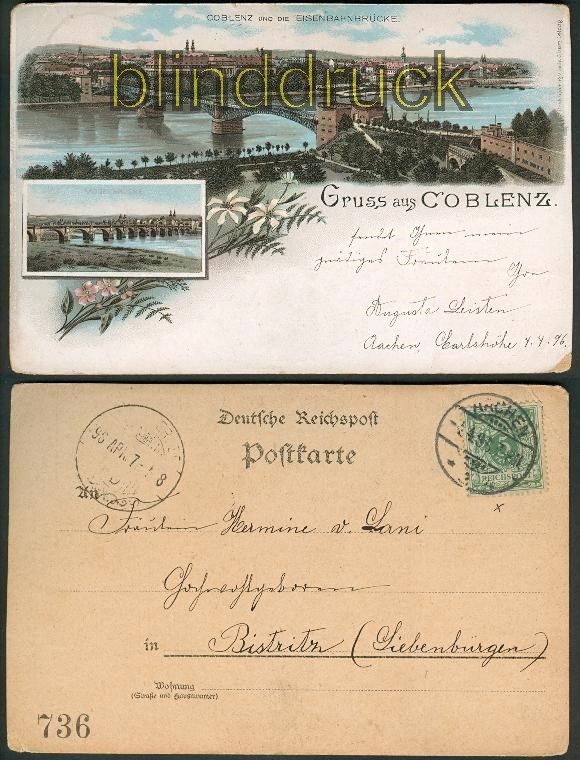 COBLENZ UND DIE EISENBAHNBRÜCKE.
blinddruck
Gruss aus COBLENZ.
sendet Ihnen mein
gnädiges Fräulein
Ihre
Augusta Leisten
Aachen, Carlshöhe 4.4.96.
Deutsche Reichspost
Postkarte
AACHEN
REICHSPOST
96 APR. 7
8
An
Fräulein Hermine v. Lani
Hochwohlgeboren
in Bistritz (Siebenbürgen)
Wohnung
(Straße und Hausnummer)
736